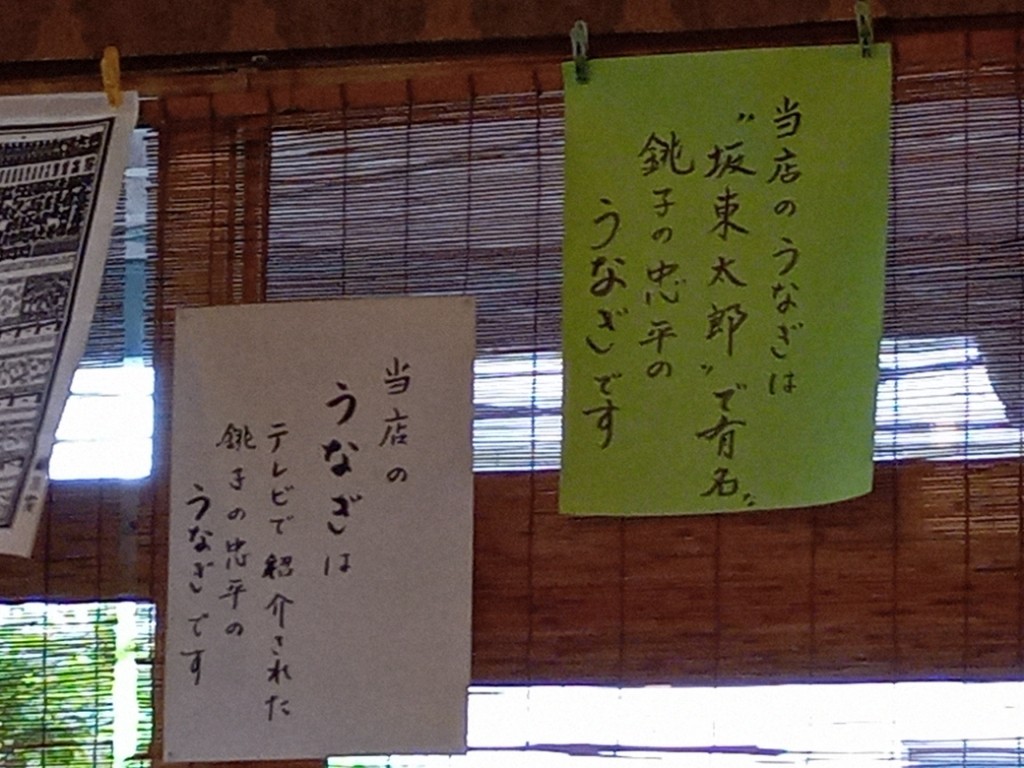 当店のうなぎは
"坂東太郎"で有名な
銚子の忠平の
うなぎです
当店の
うなぎは
テレビで紹介された
銚子の忠平の
うなぎです